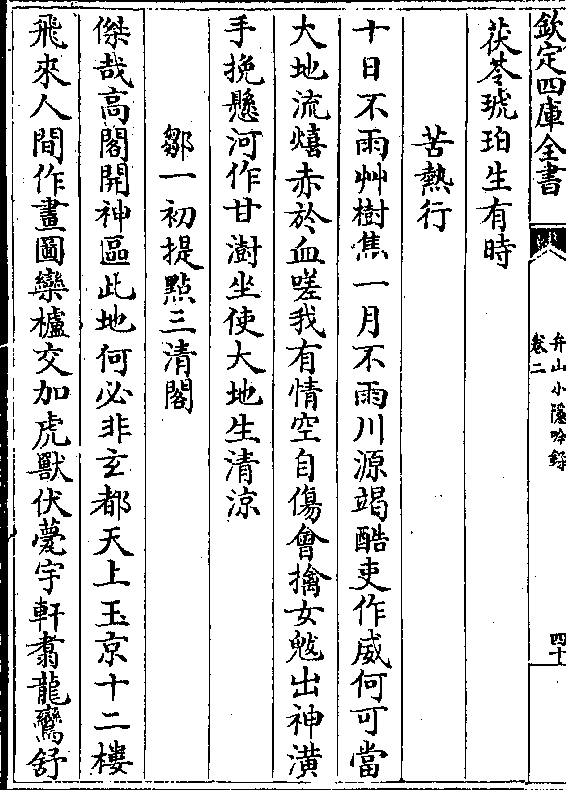 欽定四庫全書
弁山小隱吟録
卷二
四十
茯苓琥珀生有時
苦熱行
十日不雨艸樹焦一月不雨川源竭酷吏作威何可當
大地流熺赤於血嗟我有情空自傷會擒女魃出神潢
手挽懸河作甘澍坐使大地生清涼
鄒一初提㸃三清閣
傑哉高閣開神區此地何必非玄都天上玉京十二樓
飛來人間作畫圖欒櫨交加虎獸伏甍宇軒翥龍鸞舒